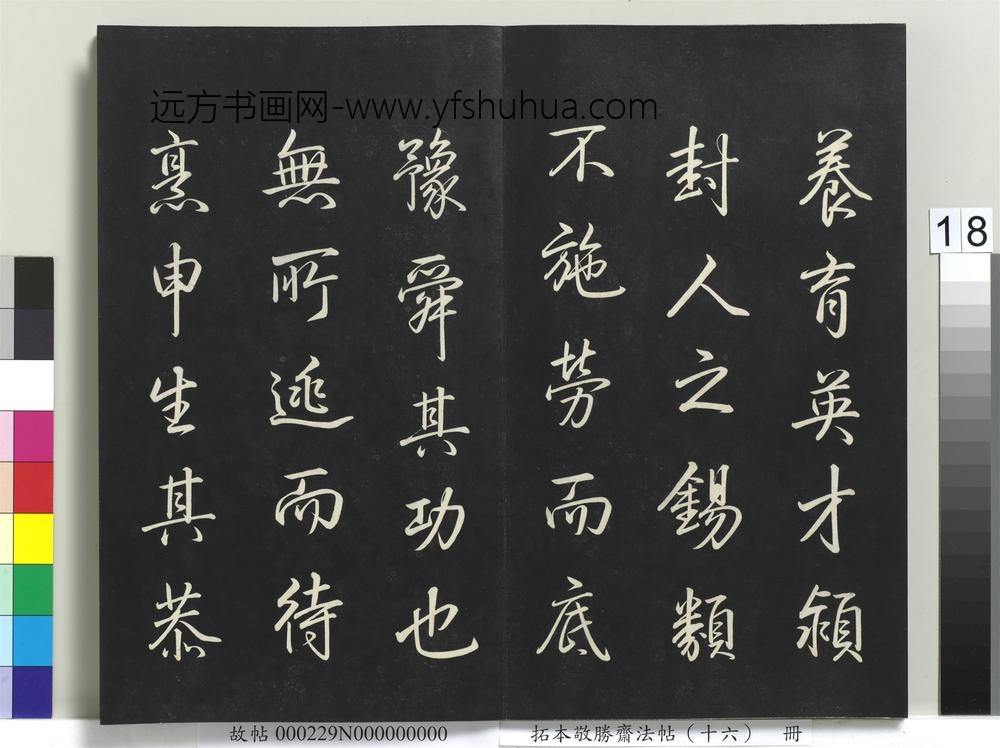 远方书画网-www.yfshuhua.com
養育英才頴
封人之錫類
不施勞而底
豫舜其功也
無所逃而待
烹申生其恭
18
故帖 000229N000000000
拓本敬勝齋法帖（十六） 冊